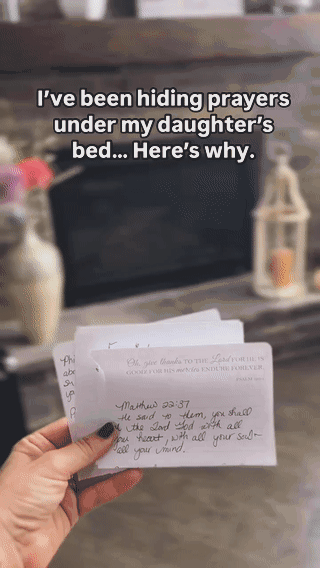 I've been hiding prayers
under my daughter's
bed... Here's why.
Oh, give thanks TO THE Lord FOR HE IS
GOOD FOR HIS mercies ENDURE FOREVER.
Matthew 22:37
He said to them, you shall
the Lord God with all
your heart, with all your soul
all your mind.